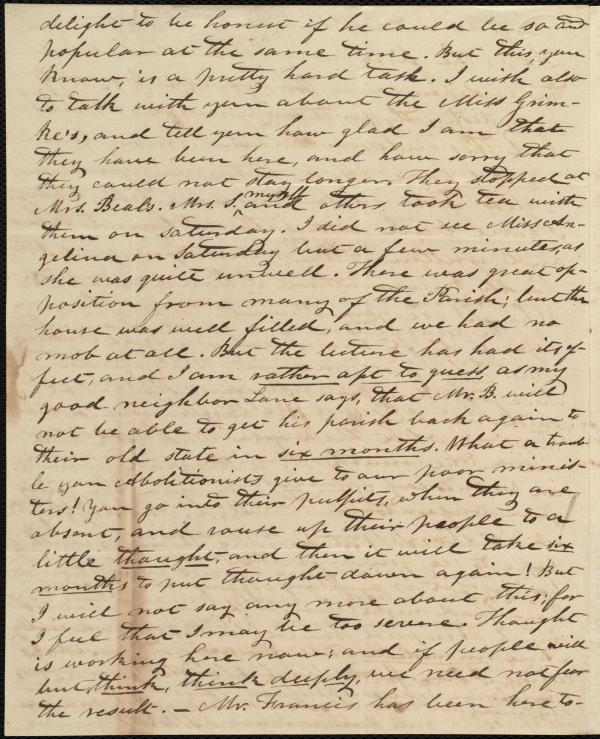 delight to be honest if he could be so and
popular at the same time. But this, you
know, is a pretty hard task. I wish also
to talk with you about the Miss Grim-
ke's, and tell you how glad I am that
they have been here, and how sorry that
they could not stay longer. They stopped at
Mrs. Beals. Mrs. S. myself and others took tea with
them on Saturday. I did not see Miss An-
gelina on Saturday but a few minutes, as
she was quite unwell. There was great op-
position from many of the Parish; but the
house was well filled, and we had no
mob at all. But the lecture has had its ef-
fect, and I am rather apt to guess as my
good neighbor Lane says, that Mr. B. will
not be able to get his parish back again to
their old state in six months. What a troub-
le you Abolitionists give to our poor minis-
ters! You go into their pulpits, when they are
absent, and rouse up their people to a
little thought, and then it will take six
months to put thought down again! But
I will not say any more about this; for
I feel that I may be too severe. Thought
is working here now; and if people will
but think, think deeply, we need not fear
the result. – Mr. Francis has been here to-